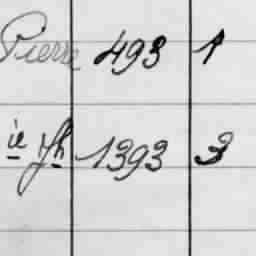 Pierre 493 1
ie Jh 1393 3